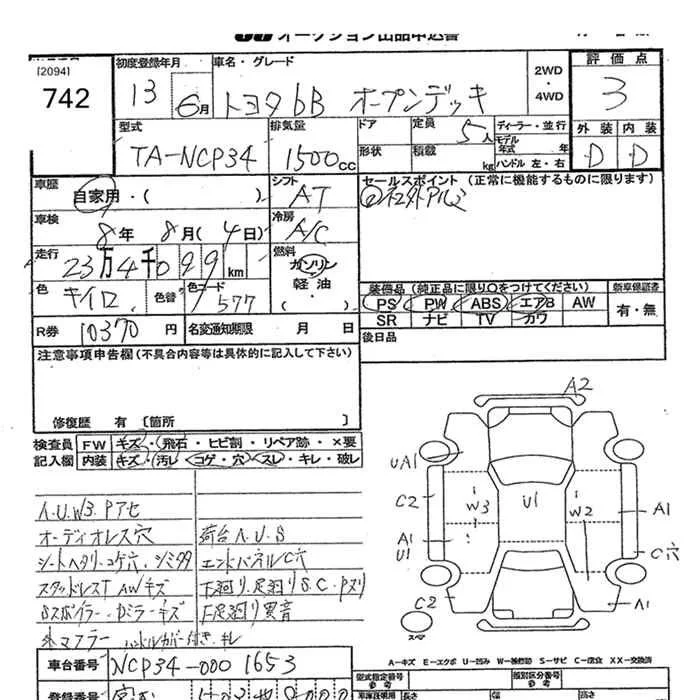 オークション出品申込書
[2094]
742
初度登録年月
13 6月
車名・グレード
トヨタbB オープンデッキ
2WD
・
4WD
評価点
3
型式
TA-NCP34
排気量
1500cc
ドア
定員 5人
形状
積載 kg
ディーラー・並行
モデル年式 年
ハンドル 左・右
外装 内装
D D
車歴
自家用・( ).
シフト
AT
セールスポイント (正常に機能するものに限ります)
社外アルミ
車検
8年 8月(4日)
冷房
A/C
走行
23万4千099km
燃料
ガソリン
軽油
・
( )
色
キイロ
色替
色コード
577
装備品(純正品に限り○をつけてください)
新車保証書
PS PW ABS エアB AW
SR ナビ TV カワ
有・無
R券 10370円
名変通知期限 月 日
後日品
注意事項申告欄(不具合内容等は具体的に記入して下さい)
修復歴 有 〔箇所 〕
検査員
記入欄
FW キズ・飛石・ヒビ割・リペア跡・×要
内装 キズ・汚レ・コゲ・穴・スレ・キレ・破レ
A.U.W3.Pアセ
オーディオレス穴
荷台A.U.S
シートヘタリ・コゲ穴・シミタタ
エンドパネルC穴
スタッドレスT AWキズ
下廻り.足廻りS.C.Pヌリ
F足廻り異音
外マフラー ハンドルカバー付き キレ
A2
UA1
C2
W3
U1
W2
A1
A1
U1
C穴
C2
A1
スペア
A-キズ E-エクボ U-凹み W-補修跡 S-サビ C-腐食 XX-交換済
車台番号 NCP34-0001653
型式指定番号
類別区分番号
登録番号